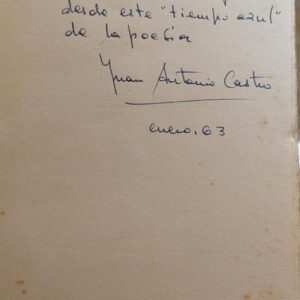 desde este "tiempo azul"
de la poesía
Juan Antonio Castro
enero, 63